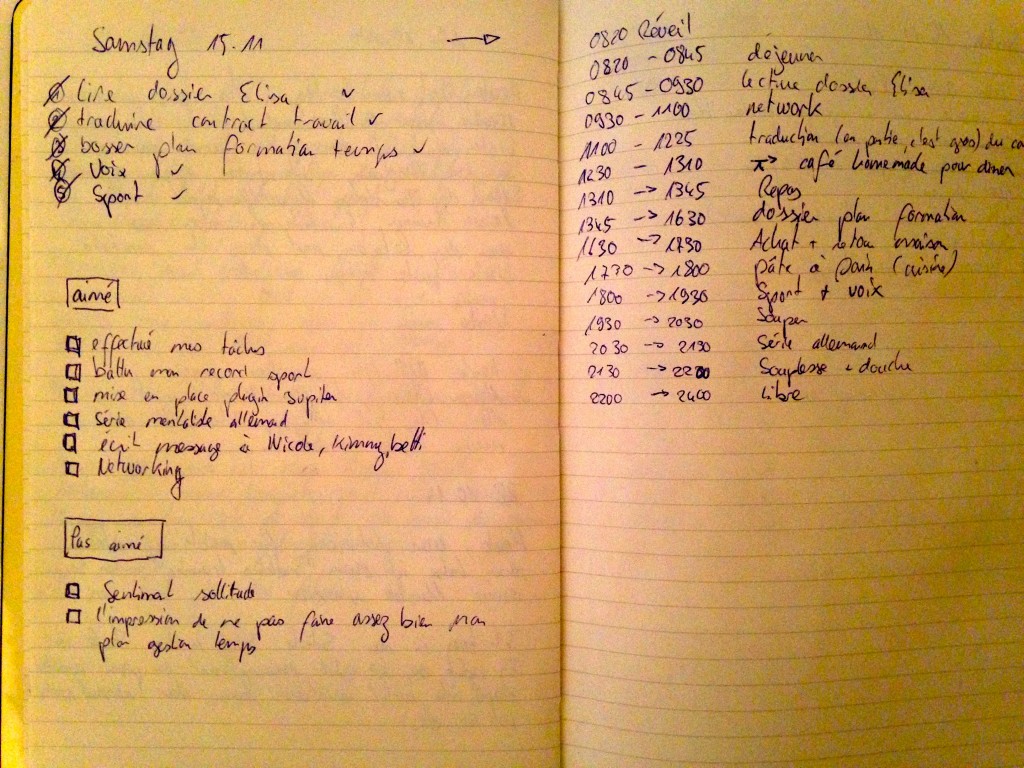 Samstag 15.11 →
1 lire dossier Elisa ✓
2 traduire contract travail ✓
3 bosser plan formation temps ✓
4 Voix ✓
5 Sport ✓
aimé
effectué mes tâches
battu mon record sport
mise en place plugin Jupiter
série mentaliste allemand
écrit message à Nicole, Kimmy, betti
Networking
Pas aimé
Sentiment sollitude
l'impression de ne pas faire assez bien mon
plan gestion temps
0820 Réveil
0820 - 0845 déjeuner
0845 - 0930 lecture dossier Elisa
0930 - 1100 network
1100 - 1225 traduction (en partie, c'est gros) du co
1230 - 1310 café homemade pour diner
1310 -> 1345 Repos
1345 -> 1630 dossier plan formation
1630 -> 1730 Achat + retour maison
1730 -> 1800 pâte à pain (cuisine)
1800 -> 1930 Sport + voix
1930 -> 2030 Souper
2030 -> 2130 Série allemand
2130 -> 2200 Souplesse + douche
2200 -> 2400 Libre